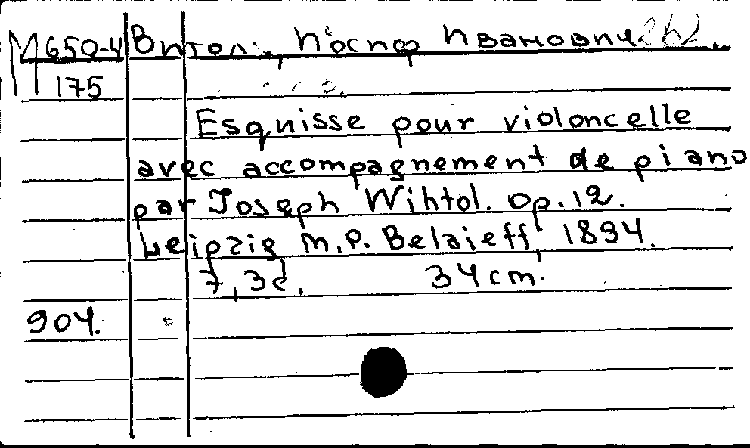 М 650-4 Витол, Иосиф Иванович
175
Esquisse pour violoncelle
avec accompagnement de piano
par Joseph Wihtol. Op. 12.
Leipzig M. P. Belaieff, 1894.
7, 3 d. 34 cm.
904.